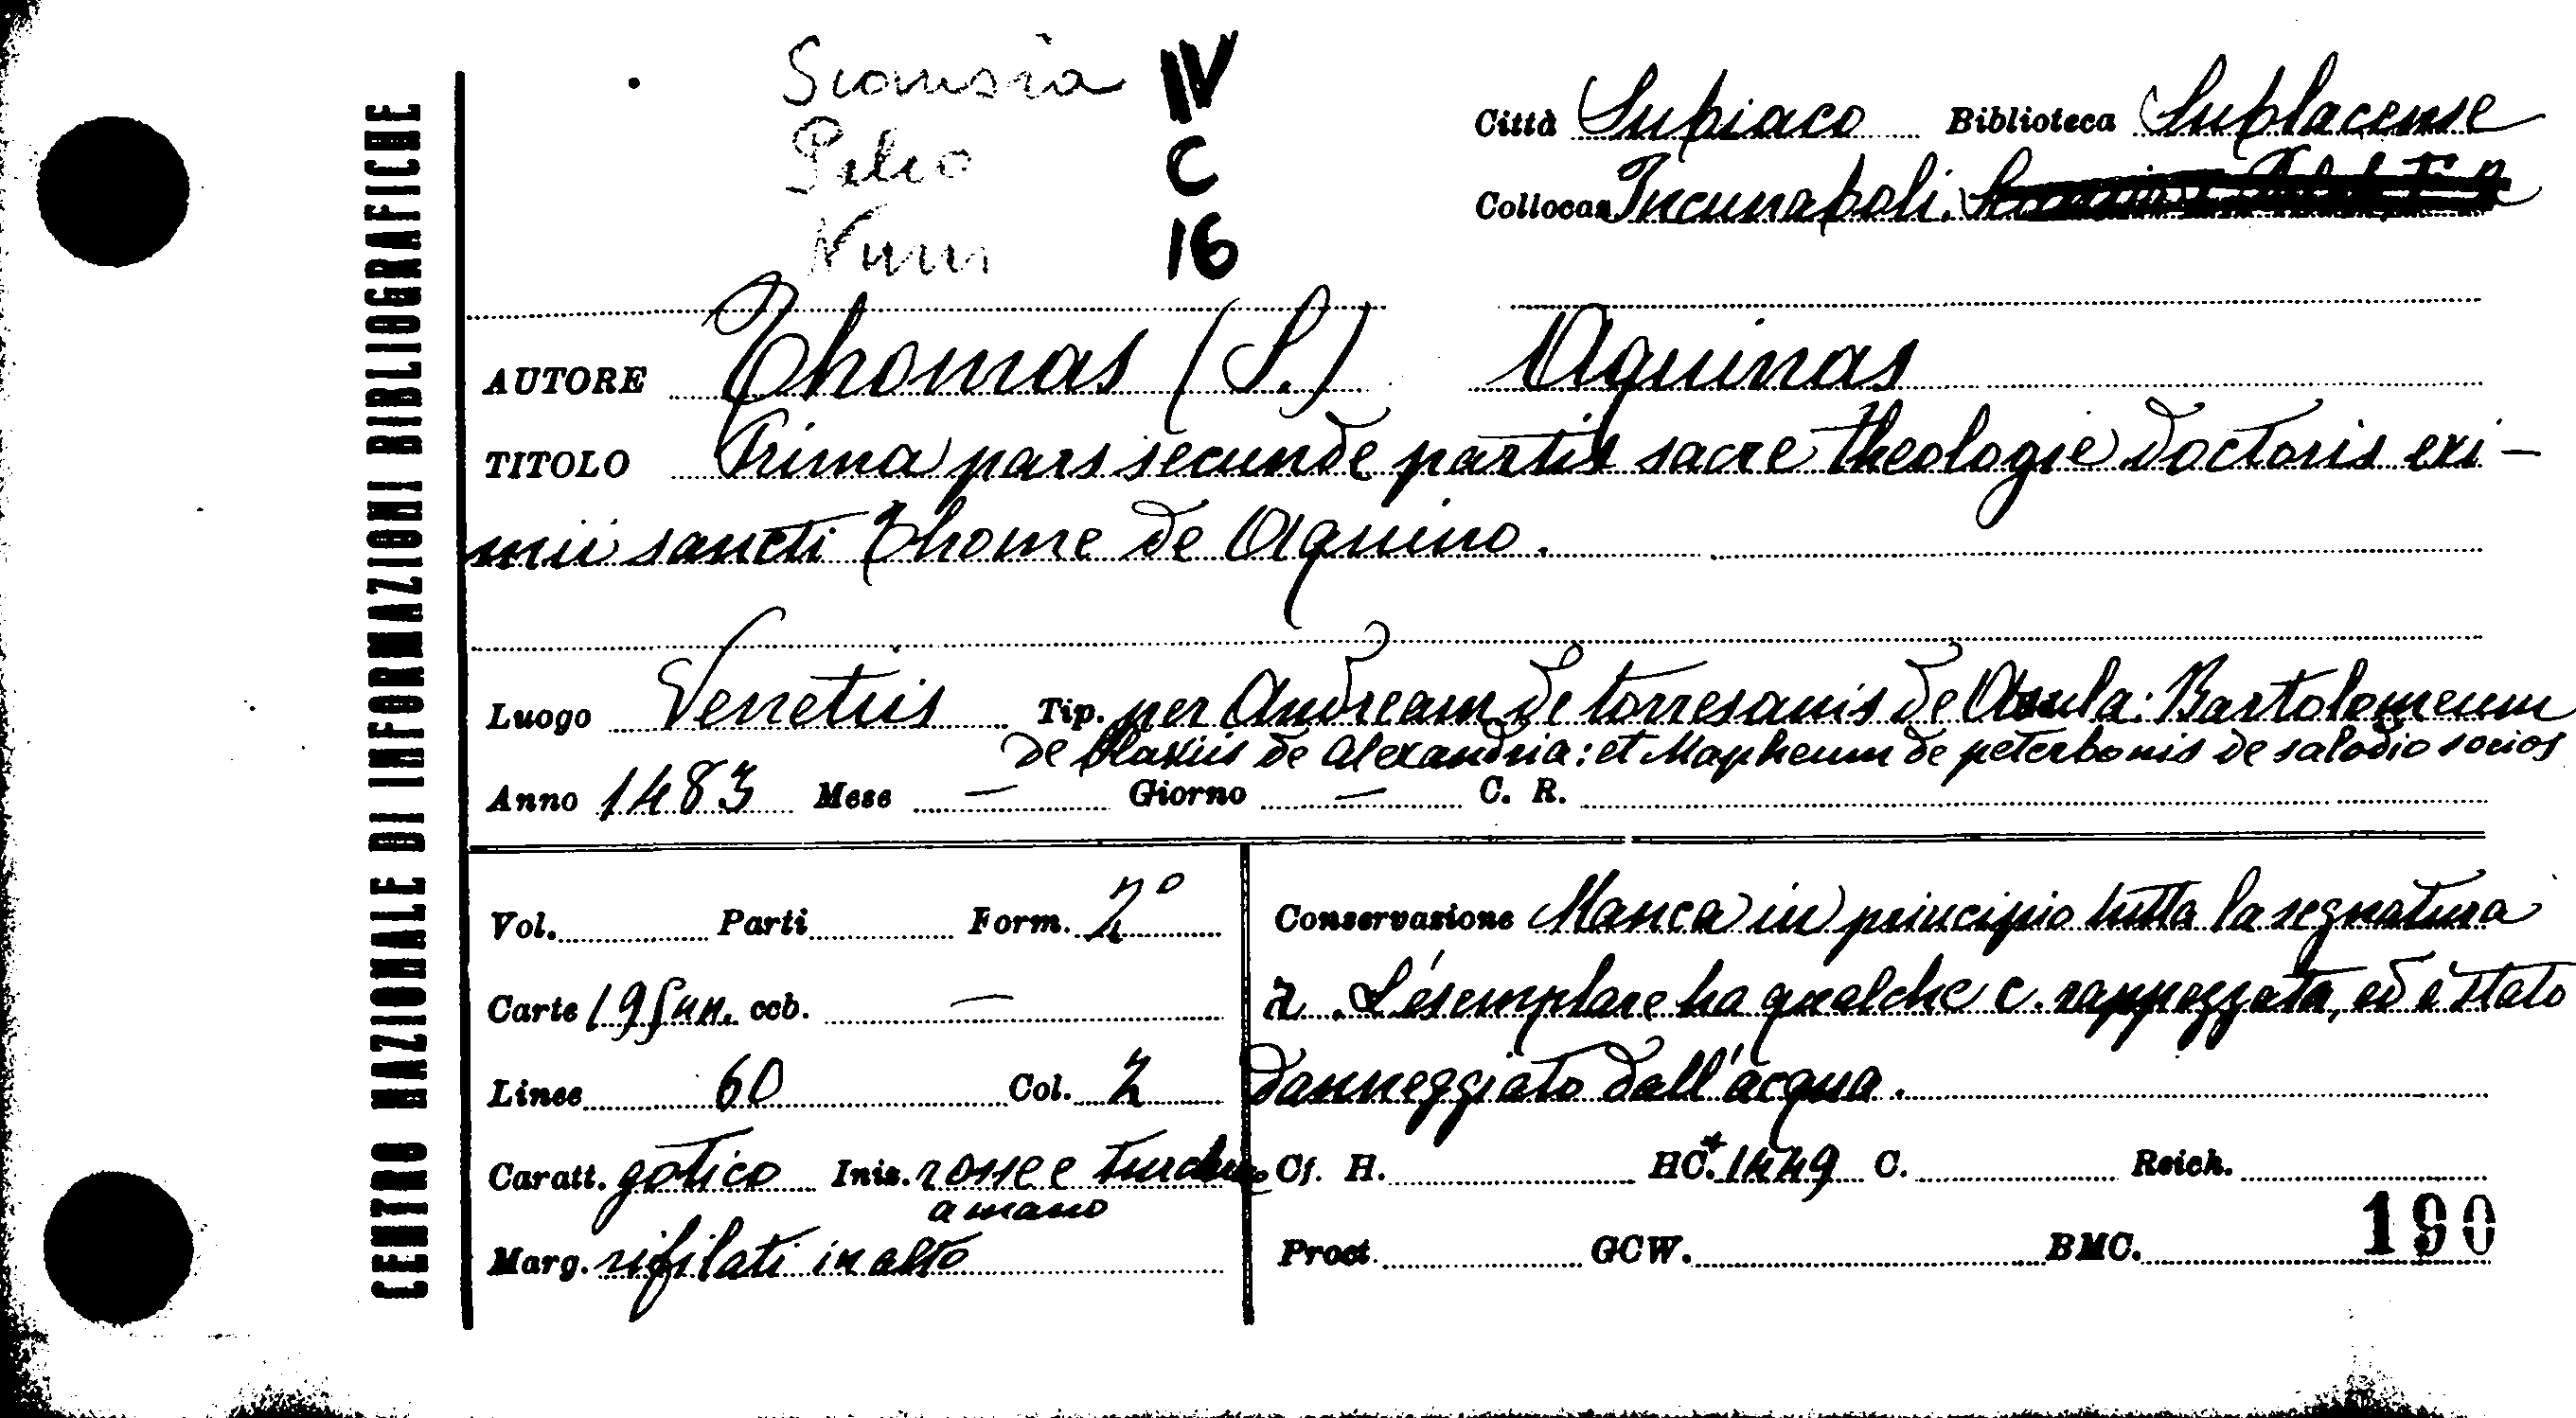 CENTRO NAZIONALE DI INFORMAZIONI BIBLIOGRAFICHE
Scansia IV
Pluteo C
Num 16
Città Subiaco Biblioteca Sublacense
Collocaz Incunaboli.
AUTORE Thomas (S.) Aquinas
TITOLO Prima pars secunde partis sacre theologie doctoris exi-
mii sancti Thome de Aquino.
Luogo Venetiis Tip. per Andream de torresanis de Asula: Bartolomeum
de blaxiis de Alexandria: et Mapheum de peterbonis de salodio socios
Anno 1483 Mese — Giorno — C. R.
Vol. Parti Form. 2°
Carte 195 nn. ccb. —
Linee 60 Col. 2
Caratt. gotico Iniz. rosse e turchine
a mano
Marg. rifilati in alto
Conservazione Manca in principio tutta la segnatura
a. L'esemplare ha qualche c. rappezzata, ed è stato
danneggiato dall'acqua.
Cf. H. HC.* 1449 C. Reich.
Proct. GCW. BMC. 190